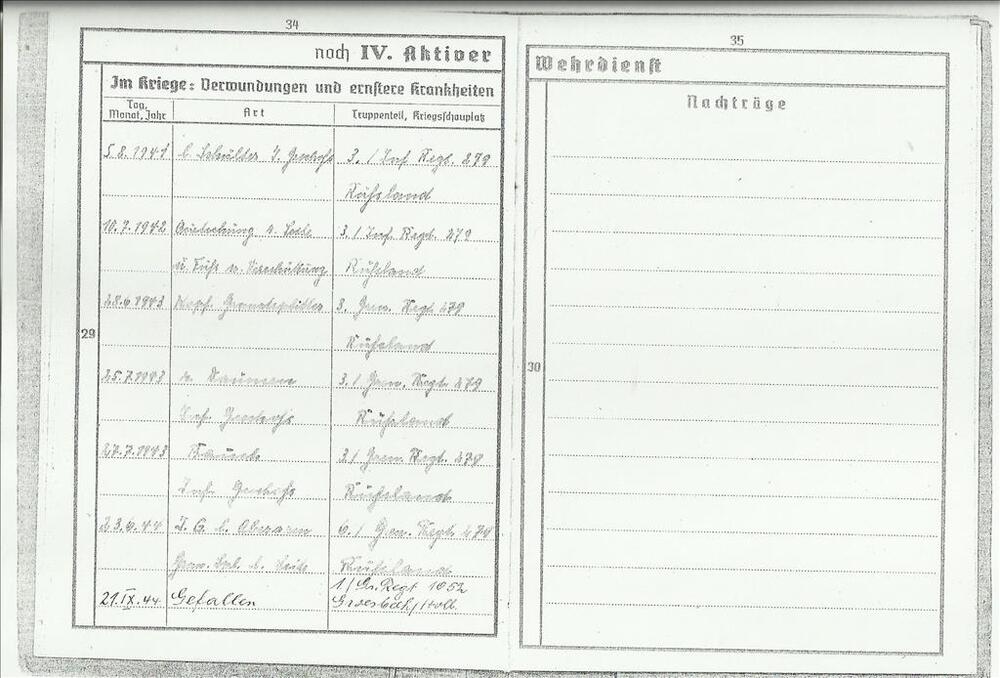 34
noch IV. Aktiver
Im Kriege: Verwundungen und ernstere Krankheiten
Tag, Monat, Jahr
Art
Truppenteil, Kriegsschauplatz
5.8.1941 l. Schulter I. Geschoß 3. / Inf. Regt. 479
Rußland
10.7.1942 Quetschung r. 3. / Inf. Regt. 479
u. Fuß Verschüttung Rußland
28.6.1943 Kopf. Granatsplitter 3. Gren. Regt. 479
29
Rußland
25.7.1943 r. Daumen 3. / Gren. Regt. 479
Inf. Geschoß Rußland
27.7.1943 3 / Gren. Regt. 479
Inf. Geschoß Rußland
23.6.44 I. G. l. Oberarm 6. / Gren. Regt.
l. Seite Rußland
1 / Gr. Regt 1052
21.IX.44 Gefallen Groesbeck / Holl.
35
Wehrdienst
Nachträge
30